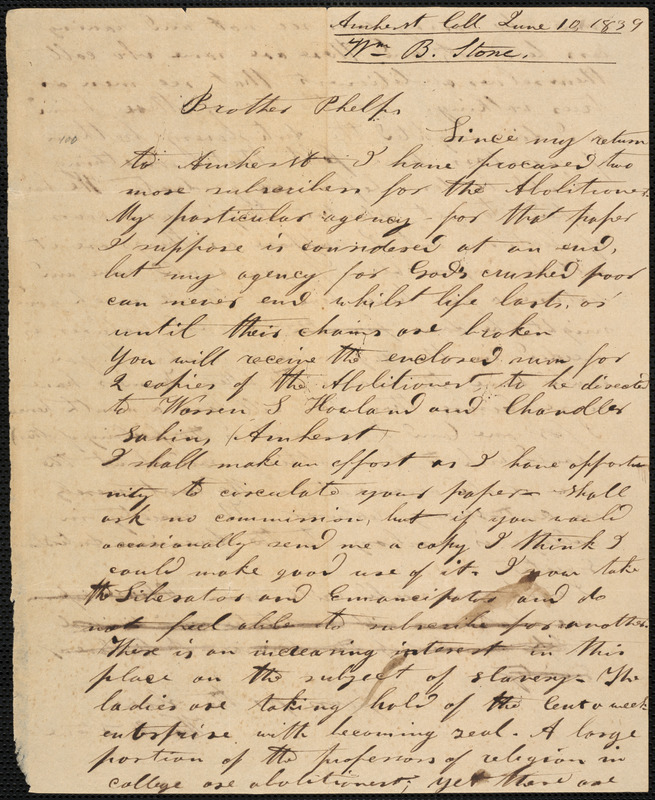 Amherst Coll June 10, 1839
Wm B. Stone.
Brother Phelps
100
Since my return
to Amherst I have procured two
more subscribers for the Abolitionist
My particular agency for that paper
I suppose is considered at an end,
but my agency for God's crushed poor
can never end whilst life lasts, or
until their chains are broken
You will receive the enclosed sum for
2 copies of the Abolitionist to be directed
to Warren S Howland and Chandler
Amherst
I shall make an effort as I have opportu
nity to circulate your paper – shall
ask no commission, but if you would
occasionally send me a copy I think I
could make good use of it. I now take
the Liberator and Emancipator and do
not feel able to subscribe for another.
There is an increasing interest in this
place on the subject of slavery – The
ladies are taking hold of the Cent a week
enterprise with becoming zeal – A large
portion of the professors of religion in
college are abolitionist; yet there are